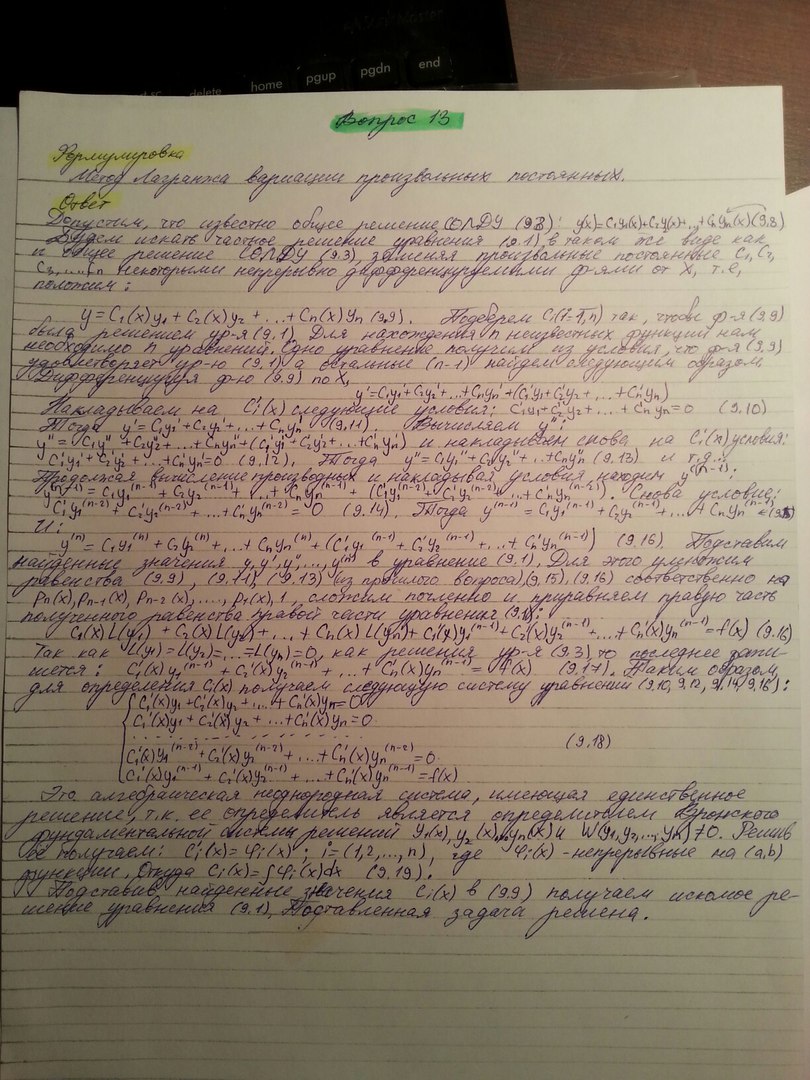 delete
home
pgup
pgdn
end
Вопрос 13
Формулировка
Метод Лагранжа вариации произвольных постоянных.
Ответ
Допустим, что известно общее решение СОЛДУ (9.3): y(x)=C₁y₁(x)+C₂y(x)+...+Cₙyₙ(x)(9.8)
Будем искать частное решение уравнения (9.1) в таком же виде как
и общее решение СОЛДУ (9.3), заменяя произвольные постоянные C₁,C₂,
C₃,...,Cₙ некоторыми непрерывно дифференцируемыми ф-ями от X, т.е,
положим:
y = C₁(x)y₁ + C₂(x)y₂ + ...+Cₙ(x)yₙ (9.9). Подберем Cᵢ(i-1,n) так, чтобы ф-я (9.9)
была решением ур-я (9.1) Для нахождения n неизвестных функций нам
необходимо n уравнений. Одно уравнение получим из условия, что ф-я (9.9)
удовлетворяет ур-ю (9.1) а остальные (n-1) найдем следующим образом.
Дифференцируя ф-ю (9.9) по X,
y'=C₁y₁'+C₂y₂'+...+Cₙyₙ'+(C₁'y₁+C₂'y₂+...+Cₙ'yₙ)
Накладываем на Cᵢ'(x) следующие условия: C₁y₁+C₂'y₂+...+Cₙ'yₙ=0 (9.10)
Тогда y'=C₁y₁'+C₂y₂'+...+Cₙyₙ' (9.11). Вычисляем y'':
y''=C₁y₁''+C₂y₂''+...+Cₙyₙ''+(C₁'y₁'+C₂'y₂'+...+Cₙ'yₙ') и накладываем снова на Cᵢ'(x) условия:
C₁'y₁'+C₂'y₂'+...+Cₙ'yₙ'=0 (9.12). Тогда y''=C₁y₁''+C₂y₂''+...+Cₙyₙ'' (9.13) и т.д.
Продолжая вычисление производных и накладывая условия находим y⁽ⁿ⁻¹⁾:
y⁽ⁿ⁻¹⁾=C₁y₁⁽ⁿ⁻¹⁾+C₂y₂⁽ⁿ⁻¹⁾+...+Cₙyₙ⁽ⁿ⁻¹⁾+(C₁'y₁⁽ⁿ⁻²⁾+C₂'y₂⁽ⁿ⁻²⁾+...+Cₙ'yₙ⁽ⁿ⁻²⁾). Снова условие:
C₁'y₁⁽ⁿ⁻²⁾+C₂'y₂⁽ⁿ⁻²⁾+...+Cₙ'yₙ⁽ⁿ⁻²⁾=0 (9.14). Тогда y⁽ⁿ⁻¹⁾=C₁y₁⁽ⁿ⁻¹⁾+C₂y₂⁽ⁿ⁻¹⁾+...+Cₙyₙ⁽ⁿ⁻¹⁾ (9.15)
И:
y⁽ⁿ⁾=C₁y₁⁽ⁿ⁾+C₂y₂⁽ⁿ⁾+...+Cₙyₙ⁽ⁿ⁾+(C₁'y₁⁽ⁿ⁻¹⁾+C₂'y₂⁽ⁿ⁻¹⁾+...+Cₙ'yₙ⁽ⁿ⁻¹⁾) (9.16). Подставим
найденные значения y,y',y'',...,y⁽ⁿ⁾ в уравнение (9.1). Для этого умножим
равенства (9.9), (9.11), (9.13) (из прошлого вопроса),(9.15),(9.16) соответственно на
pₙ(x),pₙ₋₁(x),pₙ₋₂(x),...,p₁(x),1, сложим почленно и приравняем правую часть
полученного равенства правой части уравнения (9.1):
C₁(x)L(y₁)+C₂(x)L(y₂)+...+Cₙ(x)L(yₙ)+C₁'(x)y₁⁽ⁿ⁻¹⁾+C₂'(x)y₂⁽ⁿ⁻¹⁾+...+Cₙ'(x)yₙ⁽ⁿ⁻¹⁾=f(x) (9.16)
Так как L(y₁)=L(y₂)=...=L(yₙ)=0, как решения ур-я (9.3), то последнее запи-
шется: C₁'(x)y₁⁽ⁿ⁻¹⁾+C₂'(x)y₂⁽ⁿ⁻¹⁾+...+Cₙ'(x)yₙ⁽ⁿ⁻¹⁾=f(x) (9.17). Таким образом,
для определения Cᵢ(x) получаем следующую систему уравнений (9.10, 9.12, 9.14, 9.16):
C₁'(x)y₁+C₂'(x)y₂+...+Cₙ'(x)yₙ=0
C₁'(x)y₁+C₂'(x)y₂+...+Cₙ'(x)yₙ=0
. . . . . . . . . . . . . . . (9.18)
C₁'(x)y₁⁽ⁿ⁻²⁾+C₂'(x)y₂⁽ⁿ⁻²⁾+...+Cₙ'(x)yₙ⁽ⁿ⁻²⁾=0
C₁'(x)y₁⁽ⁿ⁻¹⁾+C₂'(x)y₂⁽ⁿ⁻¹⁾+...+Cₙ'(x)yₙ⁽ⁿ⁻¹⁾=f(x)
Это алгебраическая неоднородная система, имеющая единственное
решение, т.к. ее определитель является определителем Вронского
фундаментальной системы решений y₁(x),y₂(x)..yₙ(x) и W(y₁,y₂,...,yₙ)≠0. Решив
ее получаем: Cᵢ'(x)=φᵢ(x); i=(1,2,...,n), где φᵢ(x)-непрерывные на (a,b)
функции, Откуда Cᵢ(x)=∫φᵢ(x)dx (9.19).
Подставив найденные значения Cᵢ(x) в (9.9) получаем искомое ре-
шение уравнения (9.1), Поставленная задача решена.